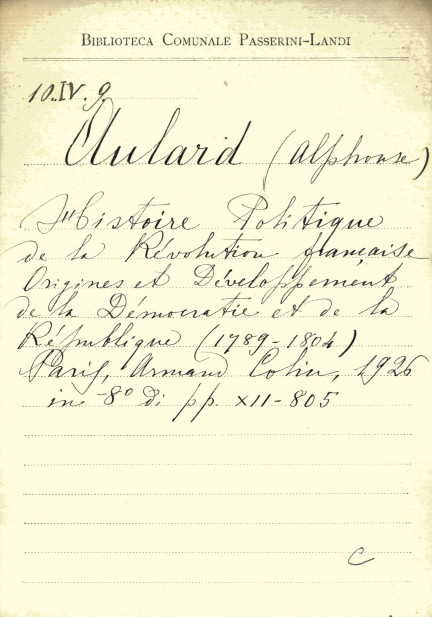 BIBLIOTECA COMUNALE PASSERINI-LANDI
10.IV.9
Aulard (Alphonse)
Histoire Politique
de la Révolution française
Origines et Développement
de la Démocratie et de la
République (1789-1804)
Paris, Armand Colin, 1926
in-8° di pp. XII-805
C